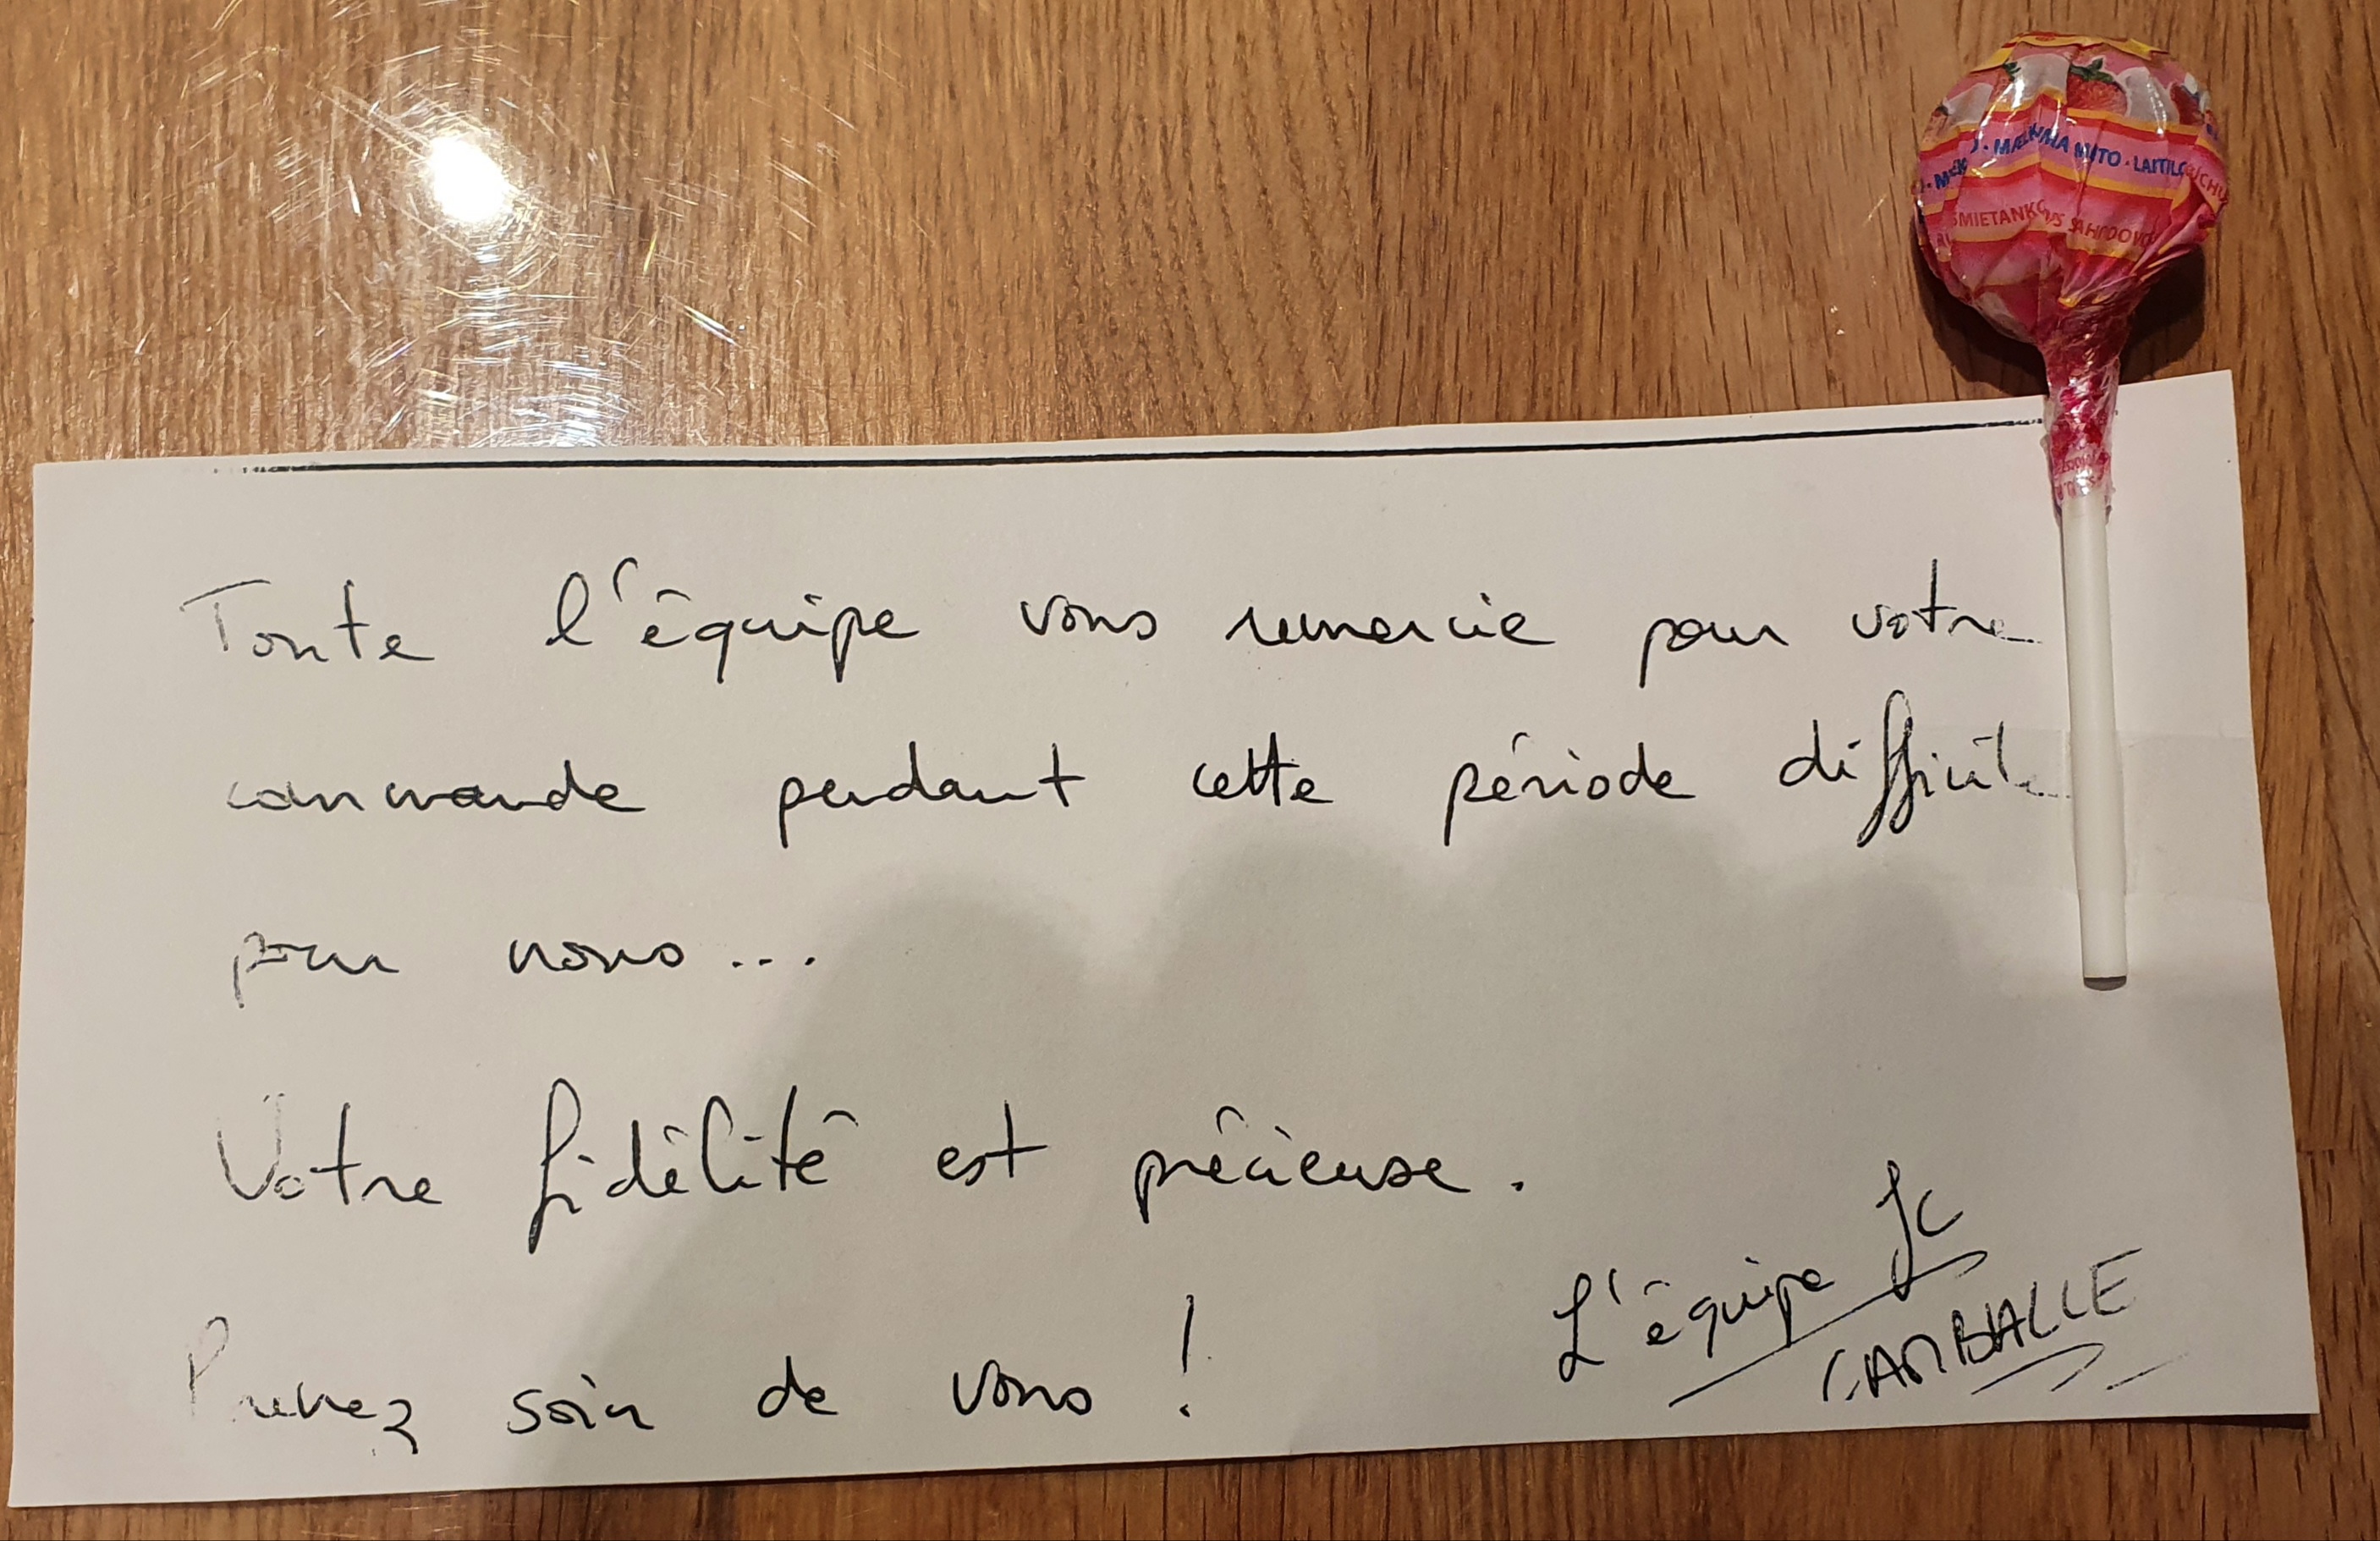 MAELK
MIETO · LAITILO
SMIETANKO
SAHIDOVO
Toute l'équipe vous remercie pour votre
commande pendant cette période difficile
pour nous...
Votre fidélité est précieuse.
Prenez soin de vous !
L'équipe JC
CAMBIALLE